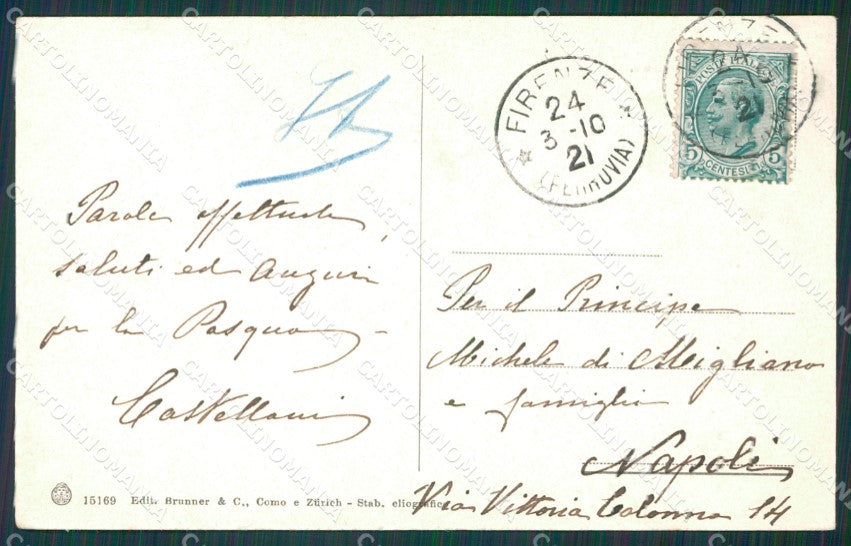 FIRENZE
24
3-10
21
(FERROVIA)
POSTE ITALIANE
5 CENTESIMI 5
21
Parole affettuose,
saluti ed auguri
per la Pasqua -
Castellani
Per il Principe
Michele di Migliano
e famiglia
Napoli
Via Vittoria Colonna 14
15169 Edit. Brunner & C., Como e Zürich - Stab. eliografico
CARTOLINOMANIA